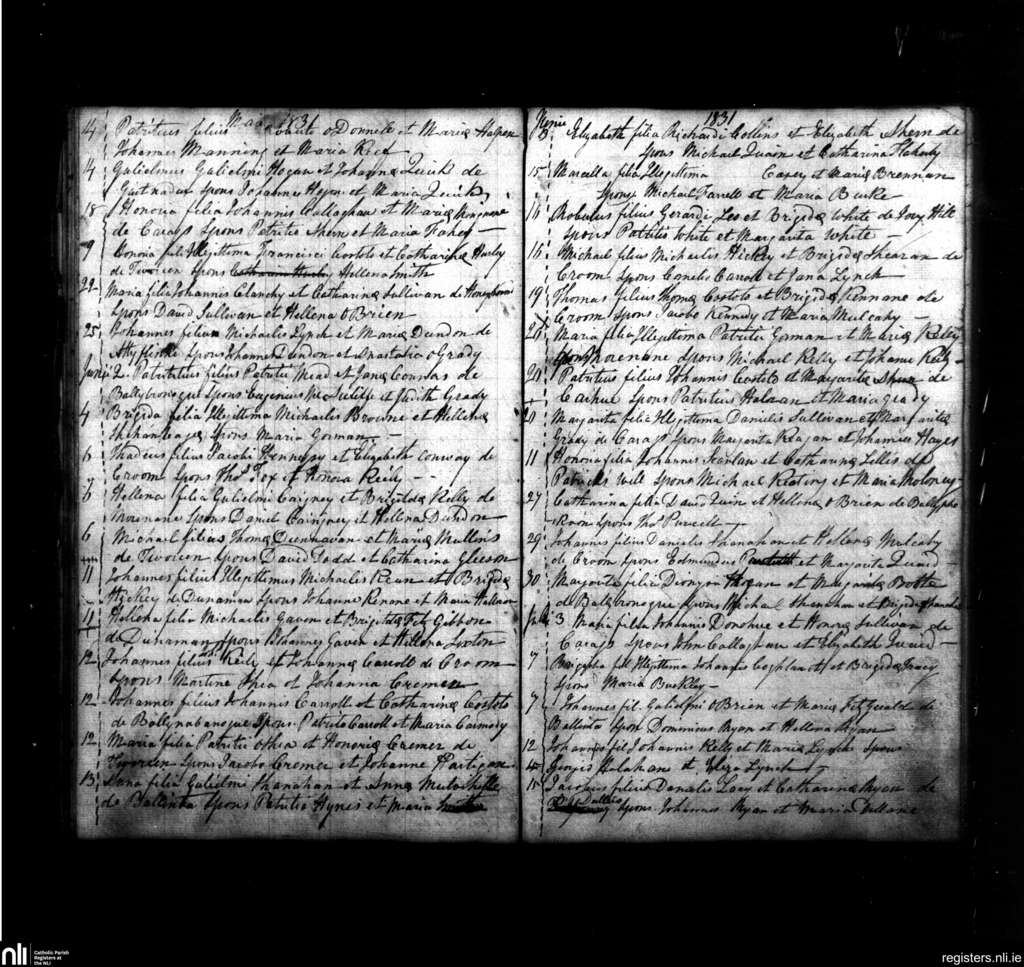 Maii 1831
14 Patritius filius O Donnell et Maria Halpen
Johannes Manning et Maria Reef
14 Gulielmus Gulielmi Hogan et Johanna Quirk de
Spons Johannes Hogan et Maria Quirk
18 Honora filia Johannis Callaghan et Maria
de Carass Spons Patritio Ahern et Maria Fahey
9 Honora filia Illegittima Francisci Costolo et Catharina Hurly
de Tworeen Spons Hellena Smith
22 Maria filia Johannis Clanchy et Catharina Sullivan de
Spons David Sullivan et Hellena O Brien
25 Johannes filius Michaelis Lynch et Maria Dundon de
Attyflin Spons Johannes Dundon et Anastatia O Grady
Junii 2 Patritius filius Patritii Mead et Jana de
Ballybronogue Spons Eugenius et Judith Grady
4 Brigida filia Illegittima Michaelis Browne et Hellena
Shehan Spons Maria Gorman
6 Thadeus filius Jacobi Hennesy et Elizabeth Conway de
Croom Spons Thos Fox et Honora Reily
6 Hellena filia Gulielmi Caigney et Brigida Kelly de
Spons Daniel Caingney et Hellena Dundon
6 Michael filius Thoma Dunnavan et Maria Mullins
de Tworeen Spons David Dodd et Catharina Gleeson
11 Johannes filius Illegittimus Michaelis Ryan et Brigida
Hickey de Dunaman Spons Johanne Renane et Maria
11 Hellena filia Michaelis Gaven et Brigida Fitz Gibbon
de Dunaman Spons Johannes Gaven et Hellena
12 Johannes filius Reily et Johanna Carroll de Croom
Spons Martino Shea et Johanna Cremen
12 Johannes filius Johannis Carroll et Catharina Costolo
de Ballynabanogue Spons Patritio Carroll et Maria Carmody
12 Maria filia Patritii O Shea et Honoria Cremer de
Tworeen Spons Jacobo Cremer et Johanne Hartigan
13 Anna filia Gulielmi Shanahan et Anna
de Ballinta Spons Patritio Hynes et Maria
Junii 1831
13 Elizabeth filia Richardi Collins et Elizabeth Ahern de
Spons Michael Quain et Catharina Flaherty
15 Marcella filia Illegittima Casey et Maria Brennan
Spons Michael Farrell et Maria Burke
16 Robertus filius Gerardi Leo et Brigida White de Hill
Spons Patritio White et Margarita White
16 Michael filius Michaelis Hickey et Brigida Shearan de
Croom Spons Cornelio Carroll et Jana Lynch
19 Thomas filius Thoma Costolo et Brigida Rennane de
Croom Spons Jacobo Kennedy et Maria Mulcahy
20 Maria filia Illegittima Patritii Gorman et Maria Kelly
Spons Michael Kelly et Johanna Kelly
20 Patritius filius Johannis Costolo et Margarita de
Caihue Spons Patritius Halaran et Maria Grady
21 Margarita filia Illegittima Danielis Sullivan et Margarita
Grady de Carass Spons Margarita Reagan et Johannes Hayes
11 Honoria filia Johannis Scanlan et Catharina Lillis de
Patricks well Spons Michael Keating et Maria Moloney
27 Catharina filia David Quin et Hellena O Brien de
Spons Thos Purcell
29 Johannes filius Danielis Shanahan et Hellena Mulcahy
de Croom Spons Edmundus et Margarita Quaid
30 Margarita filia Dionysii Hogan et Margarita
de Ballybronogue Spons Michael Shanahan et Brigida Shanahan
Julii 3 Maria filia Johannis Donohue et Honora Sullivan de
Carass Spons John Callaghan et Elizabeth Quaid
7 Brigida fil Illegittima Johannis Coghlan et Brigida Tracy
Spons Maria Buckley
7 Johannes fil Gulielmi O Brien et Maria Fitzgerald de
Ballinta Spons Dominicus Ryan et Hellena Ryan
12 Johannes fil Johannis Kelly et Maria Lynch Spons
Georgio Halahan et Eliza Lynch
15 Jacobus filius Danielis Leary et Catharina Ryan de
Ballinta Spons Johannes Ryan et Maria Dillane
nli
Catholic Parish
Registers at
the NLI
registers.nli.ie